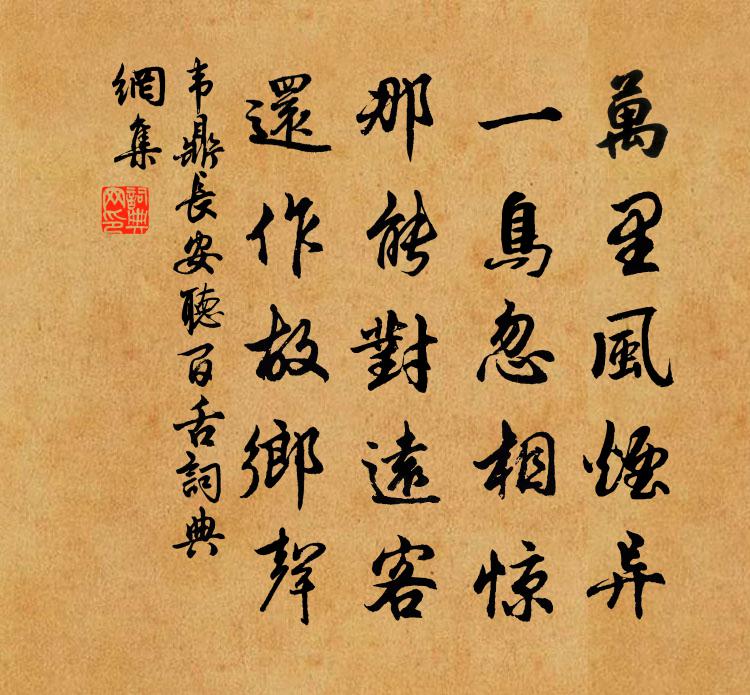 萬里風煙异
一鳥忽相惊
那能對遠客
還作故鄉聲
韦鼎長安聴百舌詞典
網集
詞典網印